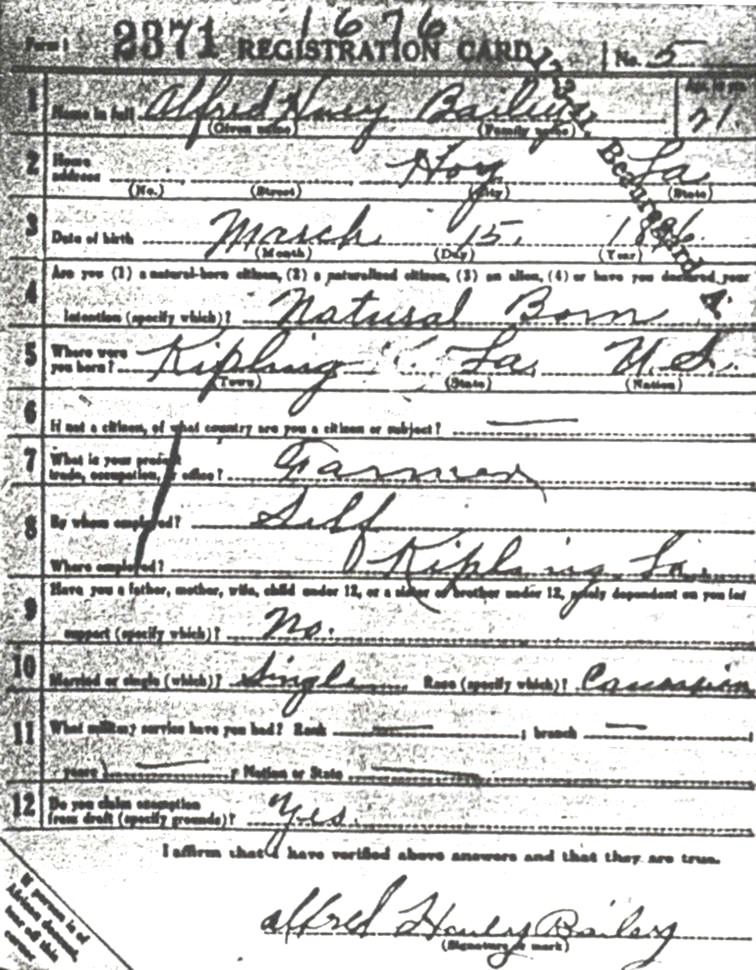 Form 1 2371 REGISTRATION CARD 1676 No. 5
1 Name in full Alfred Bailey 21
(Given name) (Family name)
2 Home address Hoy La
(No.) (Street) (City) (State)
Beauregard
3 Date of birth March 15, 1896
(Month) (Day) (Year)
Are you (1) a natural-born citizen, (2) a naturalized citizen, (3) an alien, (4) or have you declared your
4 intention (specify which)? Natural Born
5 Where were you born? Kipling La. U.S.
(Town) (State) (Nation)
6 If not a citizen, of what country are you a citizen or subject? —
7 What is your present trade, occupation, or office? Farmer
8 By whom employed? Self
Where employed? Kipling, La.
Have you a father, mother, wife, child under 12, or a sister or brother under 12, solely dependent on you for
9 support (specify which)? No.
10 Married or single (which)? Single Race (specify which)? Caucasian
11 What military service have you had? Rank — ; branch —
years — ; Nation or State —
12 Do you claim exemption from draft (specify grounds)? Yes.
I affirm that I have verified above answers and that they are true.
If person is of
African descent,
tear off this
corner
Alfred Bailey
(Signature or mark)